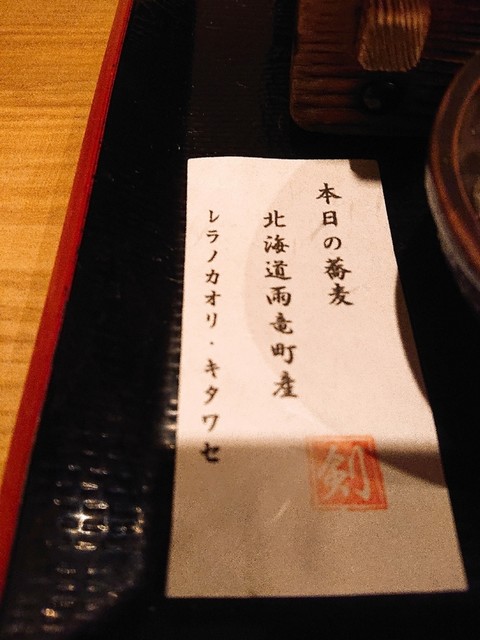 本日の蕎麦
北海道雨竜町産
レラノカオリ・キタワセ
剣